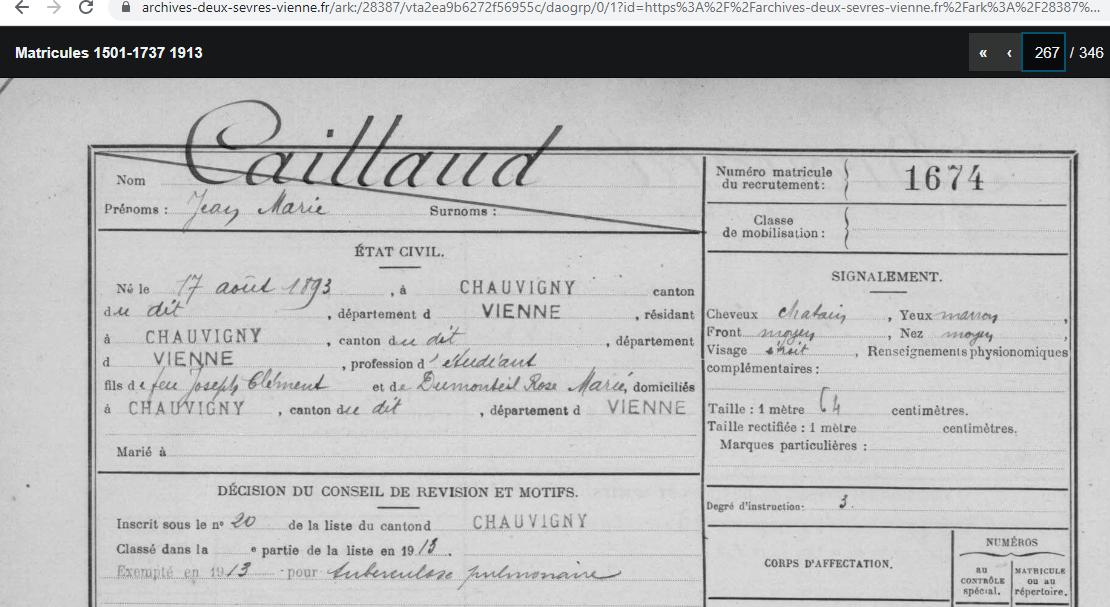 archives-deux-sevres-vienne.fr/ark:/28387/vta2ea9b6272f56955c/daogrp/0/1?id=https%3A%2F%2Farchives-deux-sevres-vienne.fr%2Fark%3A%2F28387%...
Matricules 1501-1737 1913
« ‹ 267 / 346
Nom Caillaud
Prénoms : Jean Marie Surnoms :
Numéro matricule
du recrutement : 1674
Classe
de mobilisation :
ÉTAT CIVIL.
Né le 17 août 1893, à CHAUVIGNY canton
du dit, département d VIENNE, résidant
à CHAUVIGNY, canton du dit, département
d VIENNE, profession d'étudiant
fils de feu Joseph Clément et de Dumonteil Rose Marie, domiciliés
à CHAUVIGNY, canton du dit, département d VIENNE
Marié à
SIGNALEMENT.
Cheveux chatain, Yeux marron,
Front moyen, Nez moyen
Visage étroit, Renseignements physionomiques
complémentaires :
Taille : 1 mètre 64 centimètres.
Taille rectifiée : 1 mètre centimètres.
Marques particulières :
Degré d'instruction : 3.
DÉCISION DU CONSEIL DE REVISION ET MOTIFS.
Inscrit sous le nº 20 de la liste du canton d CHAUVIGNY
Classé dans la e partie de la liste en 1913.
Exempté en 1913 pour tuberculose pulmonaire
CORPS D'AFFECTATION.
NUMÉROS
au
CONTRÔLE
spécial.
MATRICULE
ou au
répertoire.